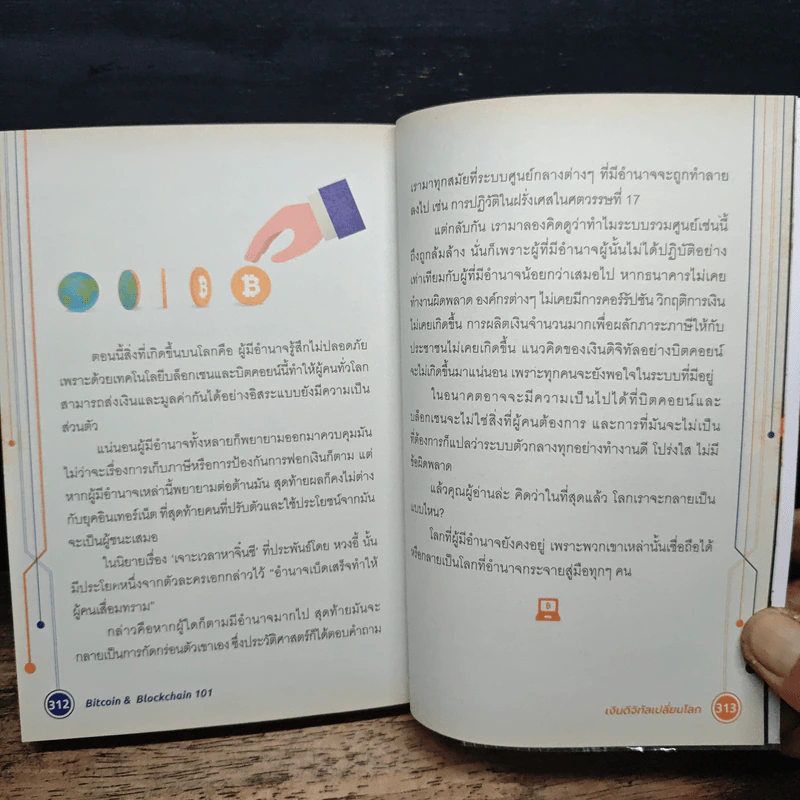 ตอนนี้สิ่งที่เกิดขึ้นบนโลกคือ ผู้มีอำนาจรู้สึกไม่ปลอดภัย
เพราะด้วยเทคโนโลยีบล็อกเชนและบิตคอยน์นี้ทำให้ผู้คนทั่วโลก
สามารถส่งเงินและมูลค่ากันได้อย่างอิสระแบบยังมีความเป็น
ส่วนตัว
แน่นอนผู้มีอำนาจทั้งหลายก็พยายามออกมาควบคุมมัน
ไม่ว่าจะเรื่องการเก็บภาษีหรือการป้องกันการฟอกเงินก็ตาม แต่
หากผู้มีอำนาจเหล่านี้พยายามต่อต้านมัน สุดท้ายผลก็คงไม่ต่าง
กับยุคอินเทอร์เน็ต ที่สุดท้ายคนที่ปรับตัวและใช้ประโยชน์จากมัน
จะเป็นผู้ชนะเสมอ
ในนิยายเรื่อง 'เจาะเวลาหาจิ๋นซี' ที่ประพันธ์โดย หวงอี้ นั้น
มีประโยคหนึ่งจากตัวละครเอกกล่าวไว้ "อำนาจเบ็ดเสร็จทำให้
ผู้คนเสื่อมทราม"
กล่าวคือหากผู้ใดก็ตามมีอำนาจมากไป สุดท้ายมันจะ
กลายเป็นการกัดกร่อนตัวเขาเอง ซึ่งประวัติศาสตร์ก็ได้ตอบคำถาม
312 Bitcoin & Blockchain 101
เรามาทุกสมัยที่ระบบศูนย์กลางต่างๆ ที่มีอำนาจจะถูกทำลาย
ลงไป เช่น การปฏิวัติในฝรั่งเศสในศตวรรษที่ 17
แต่กลับกัน เรามาลองคิดดูว่าทำไมระบบรวมศูนย์เช่นนี้
ถึงถูกล้มล้าง นั่นก็เพราะผู้ที่มีอำนาจผู้นั้นไม่ได้ปฏิบัติอย่าง
เท่าเทียมกับผู้ที่มีอำนาจน้อยกว่าเสมอไป หากธนาคารไม่เคย
ทำงานผิดพลาด องค์กรต่างๆ ไม่เคยมีการคอร์รัปชัน วิกฤติการเงิน
ไม่เคยเกิดขึ้น การผลิตเงินจำนวนมากเพื่อผลักภาระภาษีให้กับ
ประชาชนไม่เคยเกิดขึ้น แนวคิดของเงินดิจิทัลอย่างบิตคอยน์
จะไม่เกิดขึ้นมาแน่นอน เพราะทุกคนจะยังพอใจในระบบที่มีอยู่
ในอนาคตอาจจะมีความเป็นไปได้ที่บิตคอยน์และ
บล็อกเชนจะไม่ใช่สิ่งที่ผู้คนต้องการ และการที่มันจะไม่เป็น
ที่ต้องการก็แปลว่าระบบตัวกลางทุกอย่างทำงานดี โปร่งใส ไม่มี
ข้อผิดพลาด
แล้วคุณผู้อ่านล่ะ คิดว่าในที่สุดแล้ว โลกเราจะกลายเป็น
แบบไหน?
โลกที่ผู้มีอำนาจยังคงอยู่ เพราะพวกเขาเหล่านั้นเชื่อถือได้
หรือกลายเป็นโลกที่อำนาจกระจายสู่มือทุกๆ คน
เงินดิจิทัลเปลี่ยนโลก 313